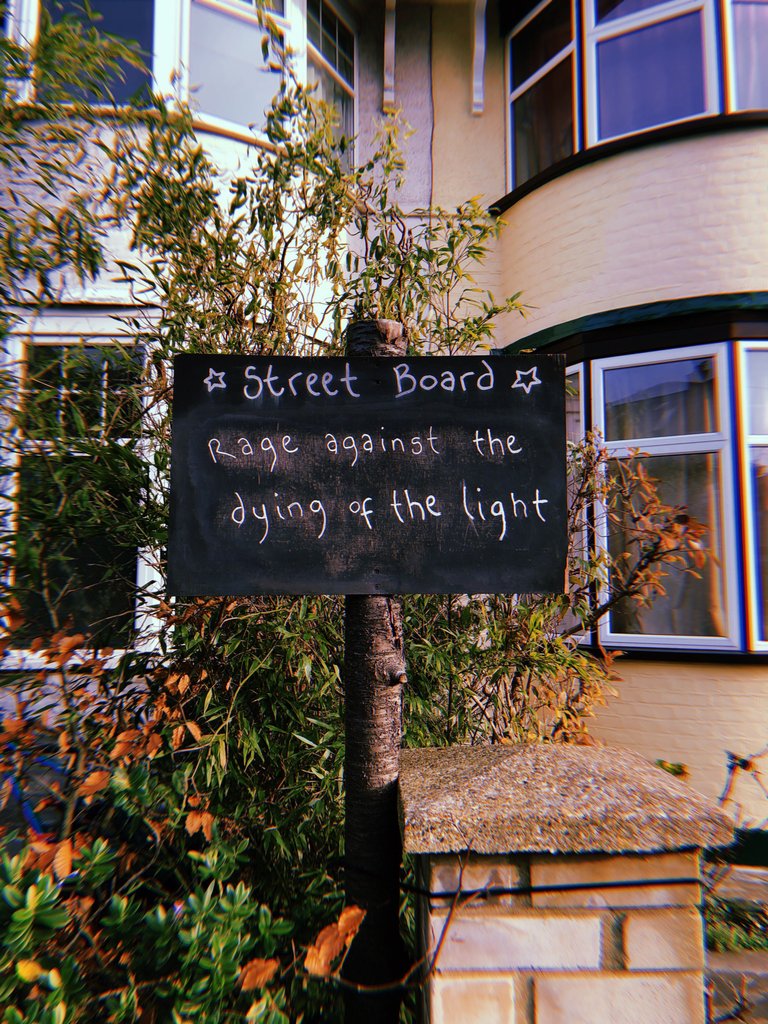 ☆ Street Board ☆
Rage against the
dying of the light